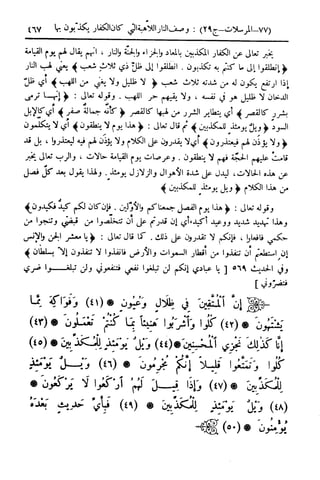 (٧٧-المرسلات-ج٢٩) : وصف النار اللاهبة التي كان الكفار يكذبون بها ٤٦٧
يخبر تعالى عن الكفار المكذبين بالمعاد والجزاء والجنة والنار ، أنهم يقال لهم يوم القيامة
﴿ إنطلقوا إلى ما كنتم به تكذبون . انطلقوا إلى ظل ذي ثلاث شعب ﴾ يعني لهب النار
إذا ارتفع يكون له من شدته ثلاث شعب ﴿ لا ظليل ولا يغني من اللهب ﴾ أي ظل
الدخان لا ظليل هو في نفسه ، ولا يقيهم حر اللهب . وقوله تعالى : ﴿ إنها ترمي
بشرر كالقصر ﴾ أي يتطاير الشرر من لهبها كالقصر ﴿ كأنه جمالة صفر ﴾ أي كالإبل
السود ﴿ ويل يومئذ للمكذبين ﴾ ثم قال تعالى : ﴿ هذا يوم لا ينطقون ﴾ أي لا يتكلمون
﴿ ولا يؤذن لهم فيعتذرون ﴾ أي لا يقدرون على الكلام ولا يؤذن لهم فيه ليعتذروا ، بل قد
قامت عليهم الحجة فهم لا ينطقون . وعرصات يوم القيامة حالات ، والرب تعالى يخبر
عن هذه الحالات، ليدل على شدة الأهوال والزلازل يومئذ . ولهذا يقول بعد كل فصل
من هذا الكلام ﴿ ويل يومئذ للمكذبين ﴾
وقوله تعالى : ﴿ هذا يوم الفصل جمعناكم والأولين . فإن كان لكم كيد فكيدون ﴾
وهذا تهديد شديد ووعيد أكيد، أي إن قدرتم على أن تتخلصوا من قبضتي وتنجوا من
حكمي فافعلوا ، فإنكم لا تقدرون على ذلك . كما قال تعالى : ﴿ يا معشر الجن والإنس
إن استطعتم أن تنفذوا من أقطار السموات والأرض فانفذوا لا تنفذون إلا بسلطان ﴾
وفي الحديث ٥٦٩ [ يا عبادي إنكم لن تبلغوا نفعي فتنفعوني ولن تبلغوا ضري
فتضروني ]
إِنَّ ٱلْمُتَّقِينَ فِي ظِلَٰلٍ وَعُيُونٍ (٤١) وَفَوَٰكِهَ مِمَّا
يَشْتَهُونَ (٤٢) كُلُوا۟ وَٱشْرَبُوا۟ هَنِيٓـًٔا بِمَا كُنتُمْ تَعْمَلُونَ (٤٣)
إِنَّا كَذَٰلِكَ نَجْزِي ٱلْمُحْسِنِينَ (٤٤) وَيْلٌ يَوْمَئِذٍ لِّلْمُكَذِّبِينَ (٤٥)
كُلُوا۟ وَتَمَتَّعُوا۟ قَلِيلًا إِنَّكُم مُّجْرِمُونَ (٤٦) وَيْلٌ يَوْمَئِذٍ
لِّلْمُكَذِّبِينَ (٤٧) وَإِذَا قِيلَ لَهُمُ ٱرْكَعُوا۟ لَا يَرْكَعُونَ
(٤٨) وَيْلٌ يَوْمَئِذٍ لِّلْمُكَذِّبِينَ (٤٩) فَبِأَيِّ حَدِيثٍ بَعْدَهُۥ
يُؤْمِنُونَ (٥٠)